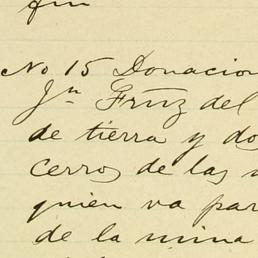 fin
No 15 Donacion
Jn Frnz del
de tierra y do
cerros de las
quien va par
de la mina